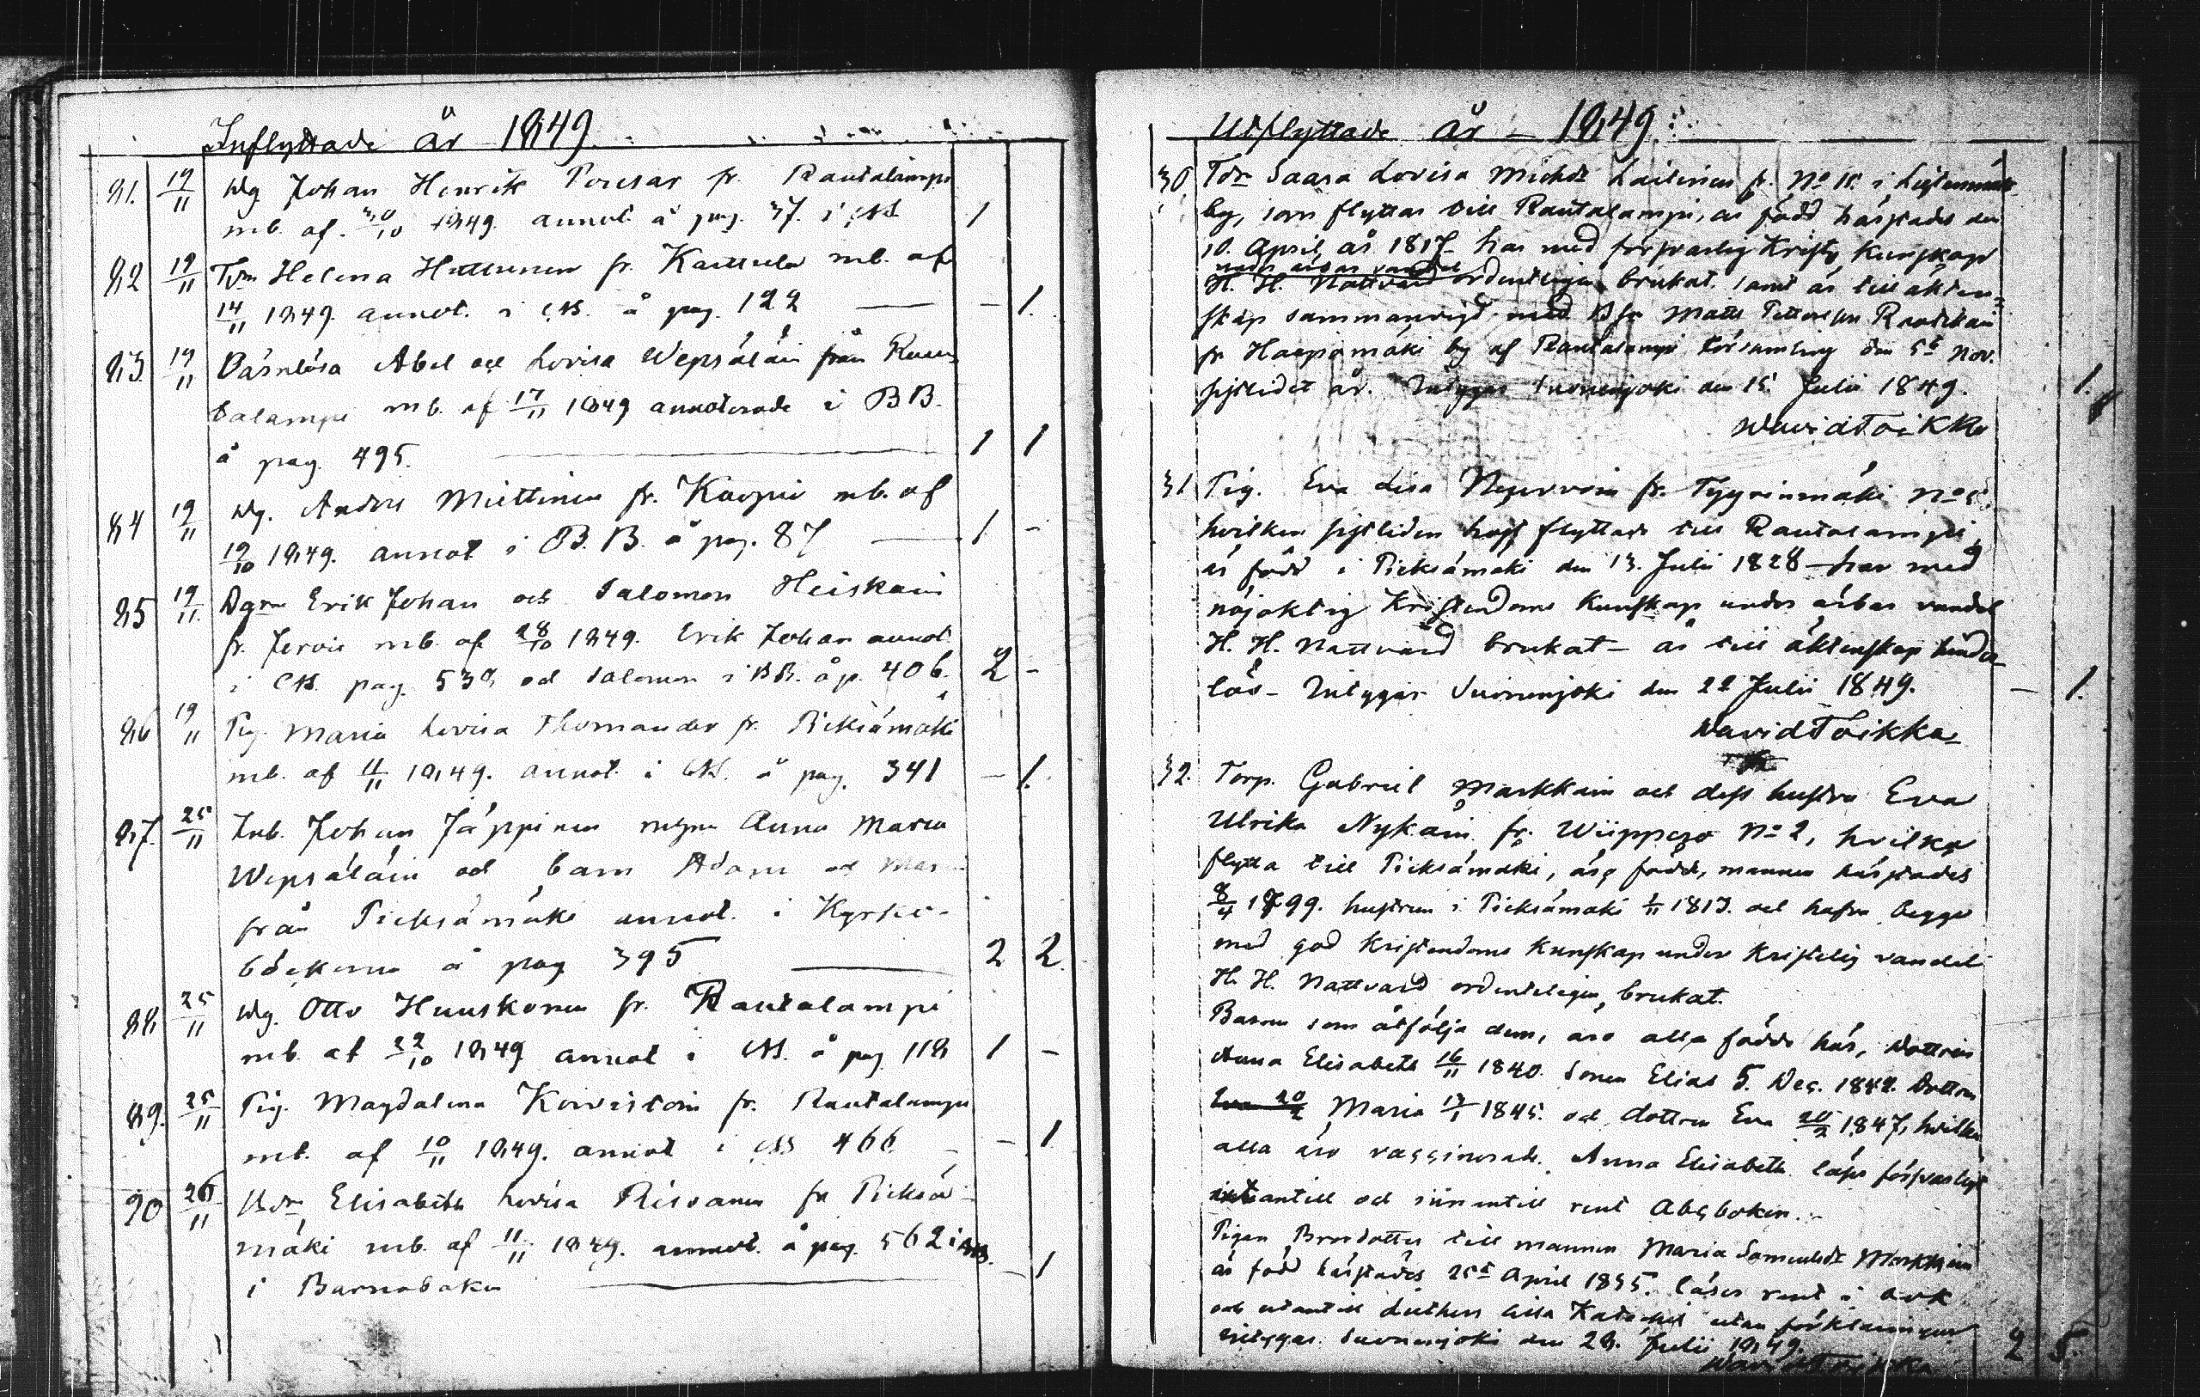 Inflyttade år 1849.
81. 19/11 Dg. Johan Henrik fr. Rautalampi
mb. af. 30/10 1849. annot å pag. 37. i CB 1
82 19/11 Tdr Helena Huttunen fr. Karttula mb. af
14/11 1849. annot. i CB. å pag. 122 — - 1.
83. 19/11 Värnlösa Abel och Lovisa Wepsäläin från Rau-
talampi mb. af 17/11 1849 annoterade i BB.
å pag. 495. 1 1
84 19/11 Dg. Anders Miettinen fr. Kuopio mb. af
19/10 1849. annot i B.B. å pag. 87 — 1 -
85 19/11. Dgr Erik Johan och Salomon Heiskain
fr. Jorois mb. af 28/10 1849. Erik Johan annot.
i CB. pag. 538 och Salomon i BB. å p. 406. 2 -
86 19/11 Pig. Maria Lovisa Thomander fr. Pieksämäki
mb. af 11/11 1849. annot. i CB. å pag. 341 - 1.
87. 25/11 Inh. Johan Jäppinen Anna Maria
Wepsäläin och barn Adam och
från Pieksämäki annot. i Kyrko-
böckerna å pag 395 — 2 2.
88. 25/11 Dg. Otto Huuskonen fr. Rautalampi
mb. af 22/10 1849 annot i CB. å pag 118 1 -
89. 25/11 Pig. Magdalena Koivistoin fr. Rautalampi
mb. af 10/11 1849. annot i CB 466 - 1
90 26/11 Bdr Elisabeth Lovisa fr Pieksä-
mäki mb. af 11/11 1849. annot. å pag. 562
i Barnaboken — - 1
Utflyttade år — 1849.
30. Tdr Saara Lovisa Michdr Laitinen fr. No 15. i
by, som flyttar till Rautalampi, är född härstädes den
10. April år 1817 har med försvarlig Kristd. Kunskap
under ärbar vandel
H. H. Nattvard ordentligen brukat. samt är till äkten-
skap sammanvigd med Matts Petterson
fr Haapamäki by af Rautalampi församling den 5te Nov.
sistlidet år. Intygar Suonenjoki den 15. Julii 1849. 1.
David Toikka
31 Pig. Eva Lisa fr. Tyyrinmäki No 5.
hvilken sistliden höst flyttade till Rautalampi,
är född i Pieksämäki den 13. Julii 1828 — har med
nöjaktig Kristendoms Kunskap under ärbar vandel
H. H. Nattvard brukat — är till äktenskap hinder-
lös — Intygar Suonenjoki den 22 Julii 1849. — 1.
David Toikka
32. Torp. Gabriel Markkain och dess hustru Eva
Ulrika Nykäin fr. No 2, hvilka
flytta till Pieksämäki, äro födde, mannen härstädes
8/4 1799. hustrun i Pieksämäki 1/11 1813. och hafva begge
med god Kristendoms Kunskap under Kristelig vandel
H. H. Nattvard ordenteligen brukat.
Barnen som åtfölja dem, äro alla födde här, Dottren
Anna Elisabeth 16/11 1840. Sonen Elias 5. Dec. 1842. Dottren
Eva 20/2 Maria 13/1 1845. och dottren Eva 20/2 1847, hvilka
alla äro vaccinerade. Anna Elisabeth läser försvarligt
utantill och innantill rent Abcboken.
Pigan, Brorsdotter till mannen Maria Samuelsdr Markkain
är född härstädes 25te April 1835. läser rent i bok
och utantill Luthers lilla Kateches utan förklaringar
Intygar. Suonenjoki den 28. Julii 1849. 2 5.
David Toikka